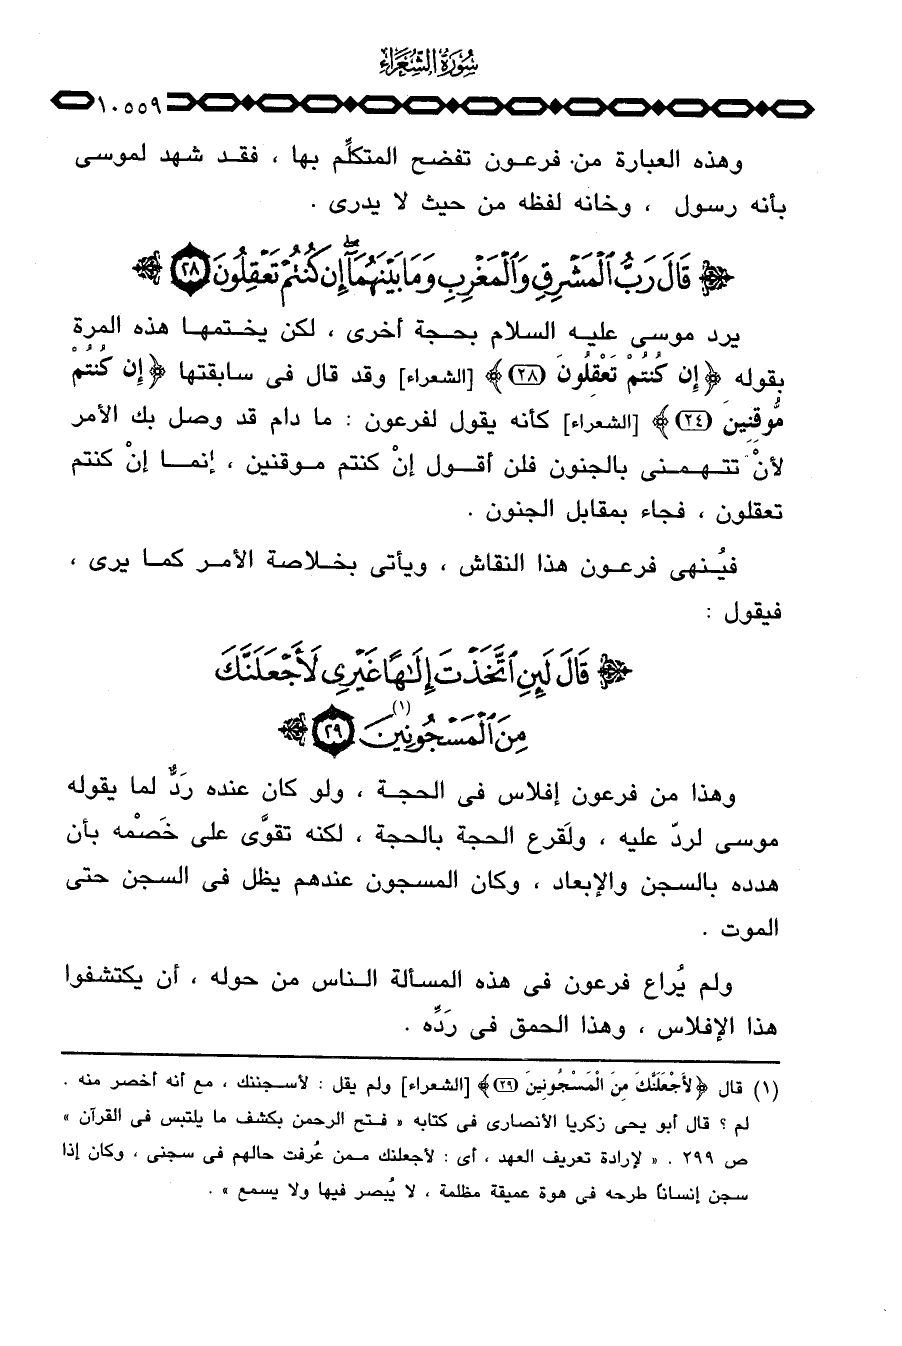 سُورَةُ الشُّعَرَاءِ
١٠٥٥٩
وهذه العبارة من فرعون تفضح المتكلِّم بها ، فقد شهد لموسى
بأنه رسول ، وخانه لفظه من حيث لا يدرى .
﴿ قَالَ رَبُّ ٱلْمَشْرِقِ وَٱلْمَغْرِبِ وَمَا بَيْنَهُمَآ إِن كُنتُمْ تَعْقِلُونَ ٢٨ ﴾
يرد موسى عليه السلام بحجة أخرى ، لكن يختمها هذه المرة
بقوله ﴿ إِن كُنتُمْ تَعْقِلُونَ (٢٨) ﴾ [الشعراء] وقد قال فى سابقتها ﴿ إِن كُنتُم
مُّوقِنِينَ (٢٤) ﴾ [الشعراء] كأنه يقول لفرعون : ما دام قد وصل بك الأمر
لأنْ تتهمنى بالجنون فلن أقول إنْ كنتم موقنين ، إنما إنْ كنتم
تعقلون ، فجاء بمقابل الجنون .
فيُنهى فرعون هذا النقاش ، ويأتى بخلاصة الأمر كما يرى ،
فيقول :
﴿ قَالَ لَئِنِ ٱتَّخَذْتَ إِلَٰهًا غَيْرِى لَأَجْعَلَنَّكَ
مِنَ ٱلْمَسْجُونِينَ (١) ٢٩ ﴾
وهذا من فرعون إفلاس فى الحجة ، ولو كان عنده رَدٌّ لما يقوله
موسى لردّ عليه ، ولَقرع الحجة بالحجة ، لكنه تقوَّى على خَصْمه بأن
هدده بالسجن والإبعاد ، وكان المسجون عندهم يظل فى السجن حتى
الموت .
ولم يُراع فرعون فى هذه المسألة الناس من حوله ، أن يكتشفوا
هذا الإفلاس ، وهذا الحمق فى رَدِّه .
(١) قال ﴿ لأَجْعَلَنَّكَ مِنَ الْمَسْجُونِينَ (٢٩) ﴾ [الشعراء] ولم يقل : لأسجننك ، مع أنه أخصر منه .
لم ؟ قال أبو يحى زكريا الأنصارى فى كتابه « فتح الرحمن بكشف ما يلتبس فى القرآن »
ص ٢٩٩ . « لإرادة تعريف العهد ، أى : لأجعلنك ممن عُرفت حالهم فى سجنى ، وكان إذا
سجن إنساناً طرحه فى هوة عميقة مظلمة ، لا يُبصر فيها ولا يسمع » .